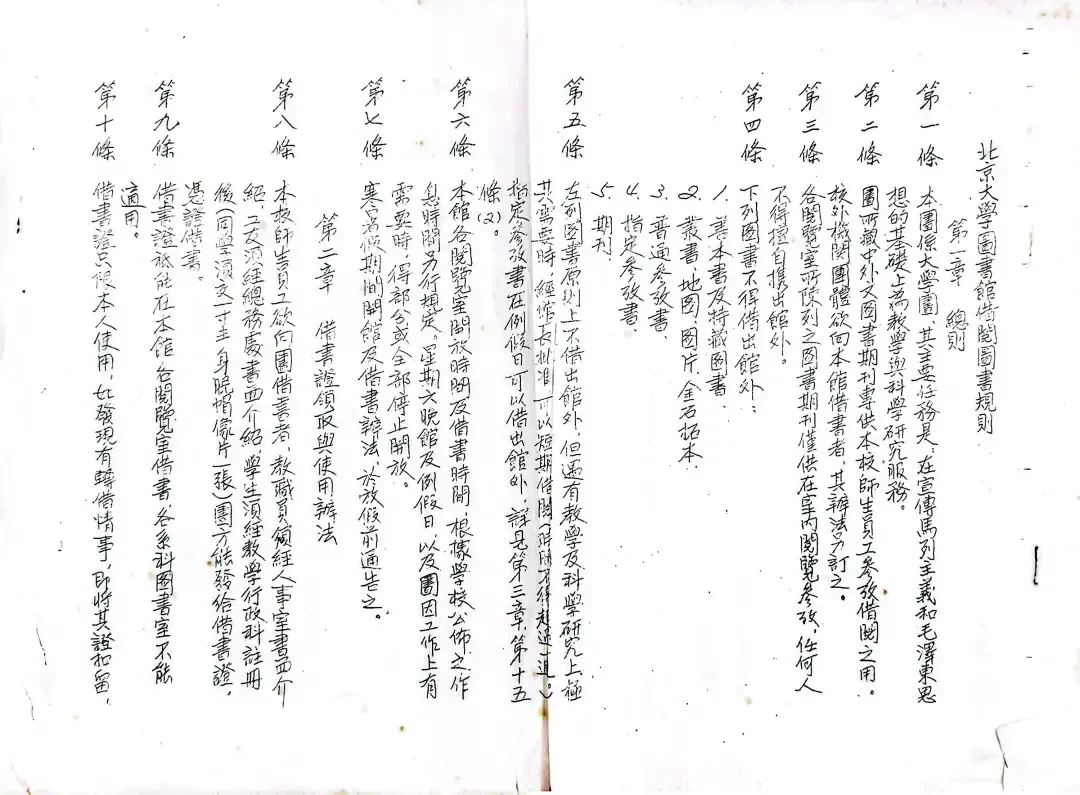 北京大學圖書館借閱圖書規則
第一章 總則
第一條 本圕係大學圕,其主要任務是:在宣傳馬列主義和毛澤東思
想的基礎上為教學與科學研究服務。
第二條 圕所藏中外文图書期刊專供本校師生員工參攷借閱之用。
校外機関團體欲向本館借書者,其辦法另訂之。
第三條 各閱覽室所陳列之图書期刊僅供在室内閱覽參攷,任何人
不得擅自携出館外。
第四條 下列图書不得借出館外:
1. 善本書及特藏图書.
2. 叢書.地图.图片.金石拓本.
3. 普通參攷書.
4. 指定參攷書.
5. 期刊.
第五條 左列图書原则上不借出館外,但遇有教學及科學研究上極
其需要時,經館長批准可以短期借閱(時間不得超过一週。)
指定參攷書在例假日可以借出館外,詳見第三章.第十五
條(2)。
第六條 本館各閱覽室開放時間及借書時間,根據學校公佈之作
息時間另行規定。星期六晚館及例假日,以及圕因工作上有
需要時,得部分或全部停止開放。
第七條 寒暑假期間開館及借書辦法,於放假前通告之。
第二章 借書證領取與使用辦法
第八條 本校師生員工欲向圕借書者,教職員須經人事室書面介
紹,工友須經總務處書面介紹,學生須經教學行政科註冊
後(同學須交一寸半身脫帽像片一張)圕方能發给借書證,
憑證借書。
第九條 借書證祗能在本館各閱覽室借書,各系科图書室不能
適用。
第十條 借書證只限本人使用,如發現有轉借情事,即將其證扣留,